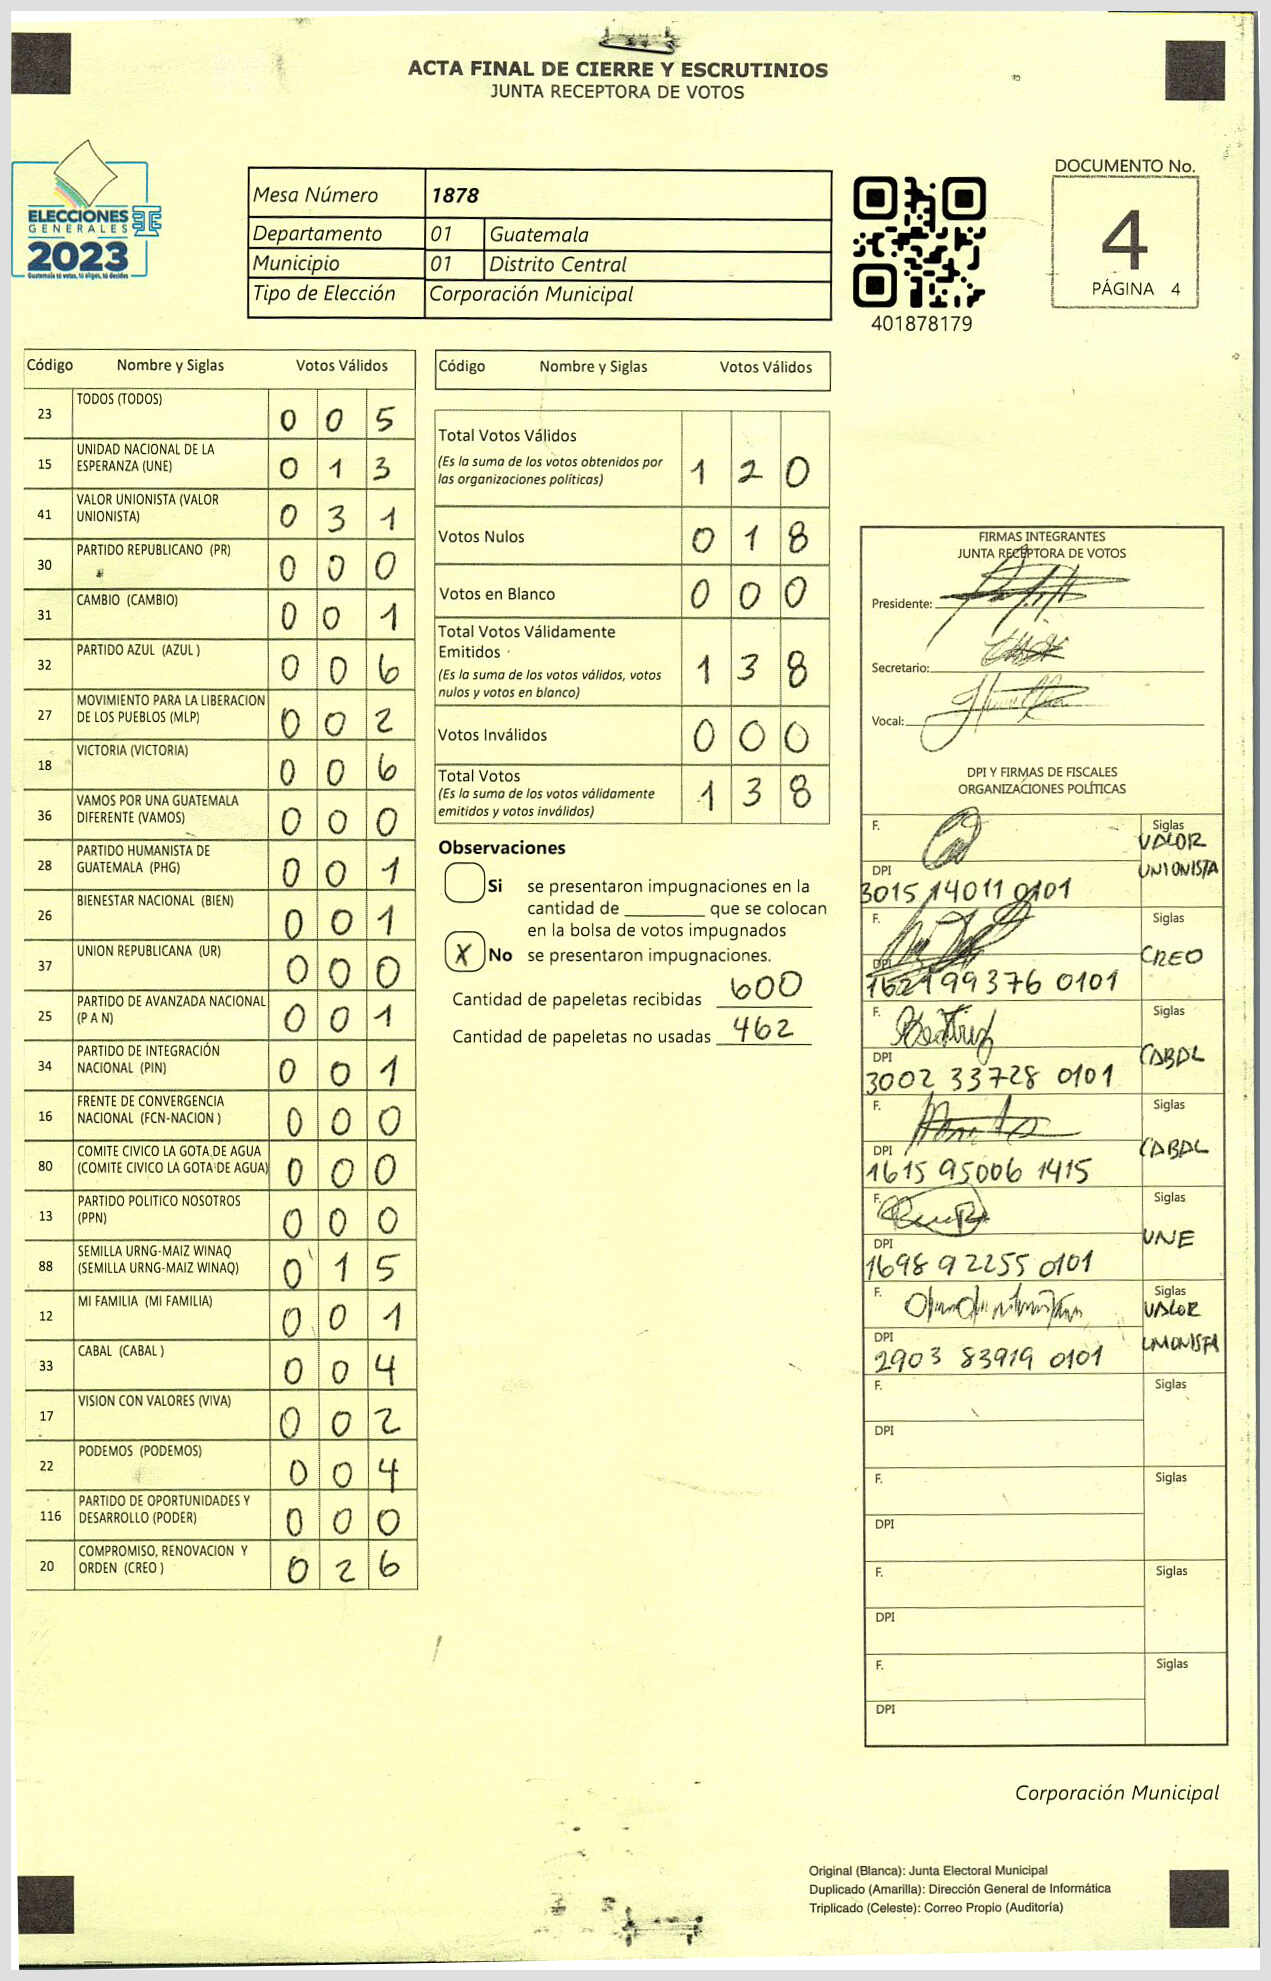 ACTA FINAL DE CIERRE Y ESCRUTINIOS
JUNTA RECEPTORA DE VOTOS
ELECCIONES
GENERALES
2023
Guatemala tú votas, tú eliges, tú decides
Mesa Número 1878
Departamento 01 Guatemala
Municipio 01 Distrito Central
Tipo de Elección Corporación Municipal
401878179
DOCUMENTO No.
4
PÁGINA 4
Código Nombre y Siglas Votos Válidos
23 TODOS (TODOS) 0 0 5
15 UNIDAD NACIONAL DE LA
ESPERANZA (UNE) 0 1 3
41 VALOR UNIONISTA (VALOR
UNIONISTA) 0 3 1
30 PARTIDO REPUBLICANO (PR) 0 0 0
31 CAMBIO (CAMBIO) 0 0 1
32 PARTIDO AZUL (AZUL ) 0 0 6
27 MOVIMIENTO PARA LA LIBERACION
DE LOS PUEBLOS (MLP) 0 0 2
18 VICTORIA (VICTORIA) 0 0 6
36 VAMOS POR UNA GUATEMALA
DIFERENTE (VAMOS) 0 0 0
28 PARTIDO HUMANISTA DE
GUATEMALA (PHG) 0 0 1
26 BIENESTAR NACIONAL (BIEN) 0 0 1
37 UNION REPUBLICANA (UR) 0 0 0
25 PARTIDO DE AVANZADA NACIONAL
(P A N) 0 0 1
34 PARTIDO DE INTEGRACIÓN
NACIONAL (PIN) 0 0 1
16 FRENTE DE CONVERGENCIA
NACIONAL (FCN-NACION ) 0 0 0
80 COMITE CIVICO LA GOTA DE AGUA
(COMITE CIVICO LA GOTA DE AGUA) 0 0 0
13 PARTIDO POLITICO NOSOTROS
(PPN) 0 0 0
88 SEMILLA URNG-MAIZ WINAQ
(SEMILLA URNG-MAIZ WINAQ) 0 1 5
12 MI FAMILIA (MI FAMILIA) 0 0 1
33 CABAL (CABAL ) 0 0 4
17 VISION CON VALORES (VIVA) 0 0 2
22 PODEMOS (PODEMOS) 0 0 4
116 PARTIDO DE OPORTUNIDADES Y
DESARROLLO (PODER) 0 0 0
20 COMPROMISO, RENOVACION Y
ORDEN (CREO ) 0 2 6
Código Nombre y Siglas Votos Válidos
Total Votos Válidos
(Es la suma de los votos obtenidos por
las organizaciones políticas) 1 2 0
Votos Nulos 0 1 8
Votos en Blanco 0 0 0
Total Votos Válidamente
Emitidos
(Es la suma de los votos válidos, votos
nulos y votos en blanco) 1 3 8
Votos Inválidos 0 0 0
Total Votos
(Es la suma de los votos válidamente
emitidos y votos inválidos) 1 3 8
Observaciones
Si se presentaron impugnaciones en la
cantidad de ________ que se colocan
en la bolsa de votos impugnados
X No se presentaron impugnaciones.
Cantidad de papeletas recibidas 600
Cantidad de papeletas no usadas 462
FIRMAS INTEGRANTES
JUNTA RECEPTORA DE VOTOS
Presidente:
Secretario:
Vocal:
DPI Y FIRMAS DE FISCALES
ORGANIZACIONES POLÍTICAS
F. Siglas
VALOR
UNIONISTA
DPI
3015 14011 0101
F. Siglas
CREO
DPI
1621 99376 0101
F. Siglas
CABAL
DPI
3002 33728 0101
F. Siglas
CABAL
DPI
1615 95006 1415
F. Siglas
UNE
DPI
1698 92255 0101
F. Siglas
VALOR
UNIONISTA
DPI
2903 83919 0101
F. Siglas
DPI
F. Siglas
DPI
F. Siglas
DPI
F. Siglas
DPI
Corporación Municipal
Original (Blanca): Junta Electoral Municipal
Duplicado (Amarilla): Dirección General de Informática
Triplicado (Celeste): Correo Propio (Auditoría)